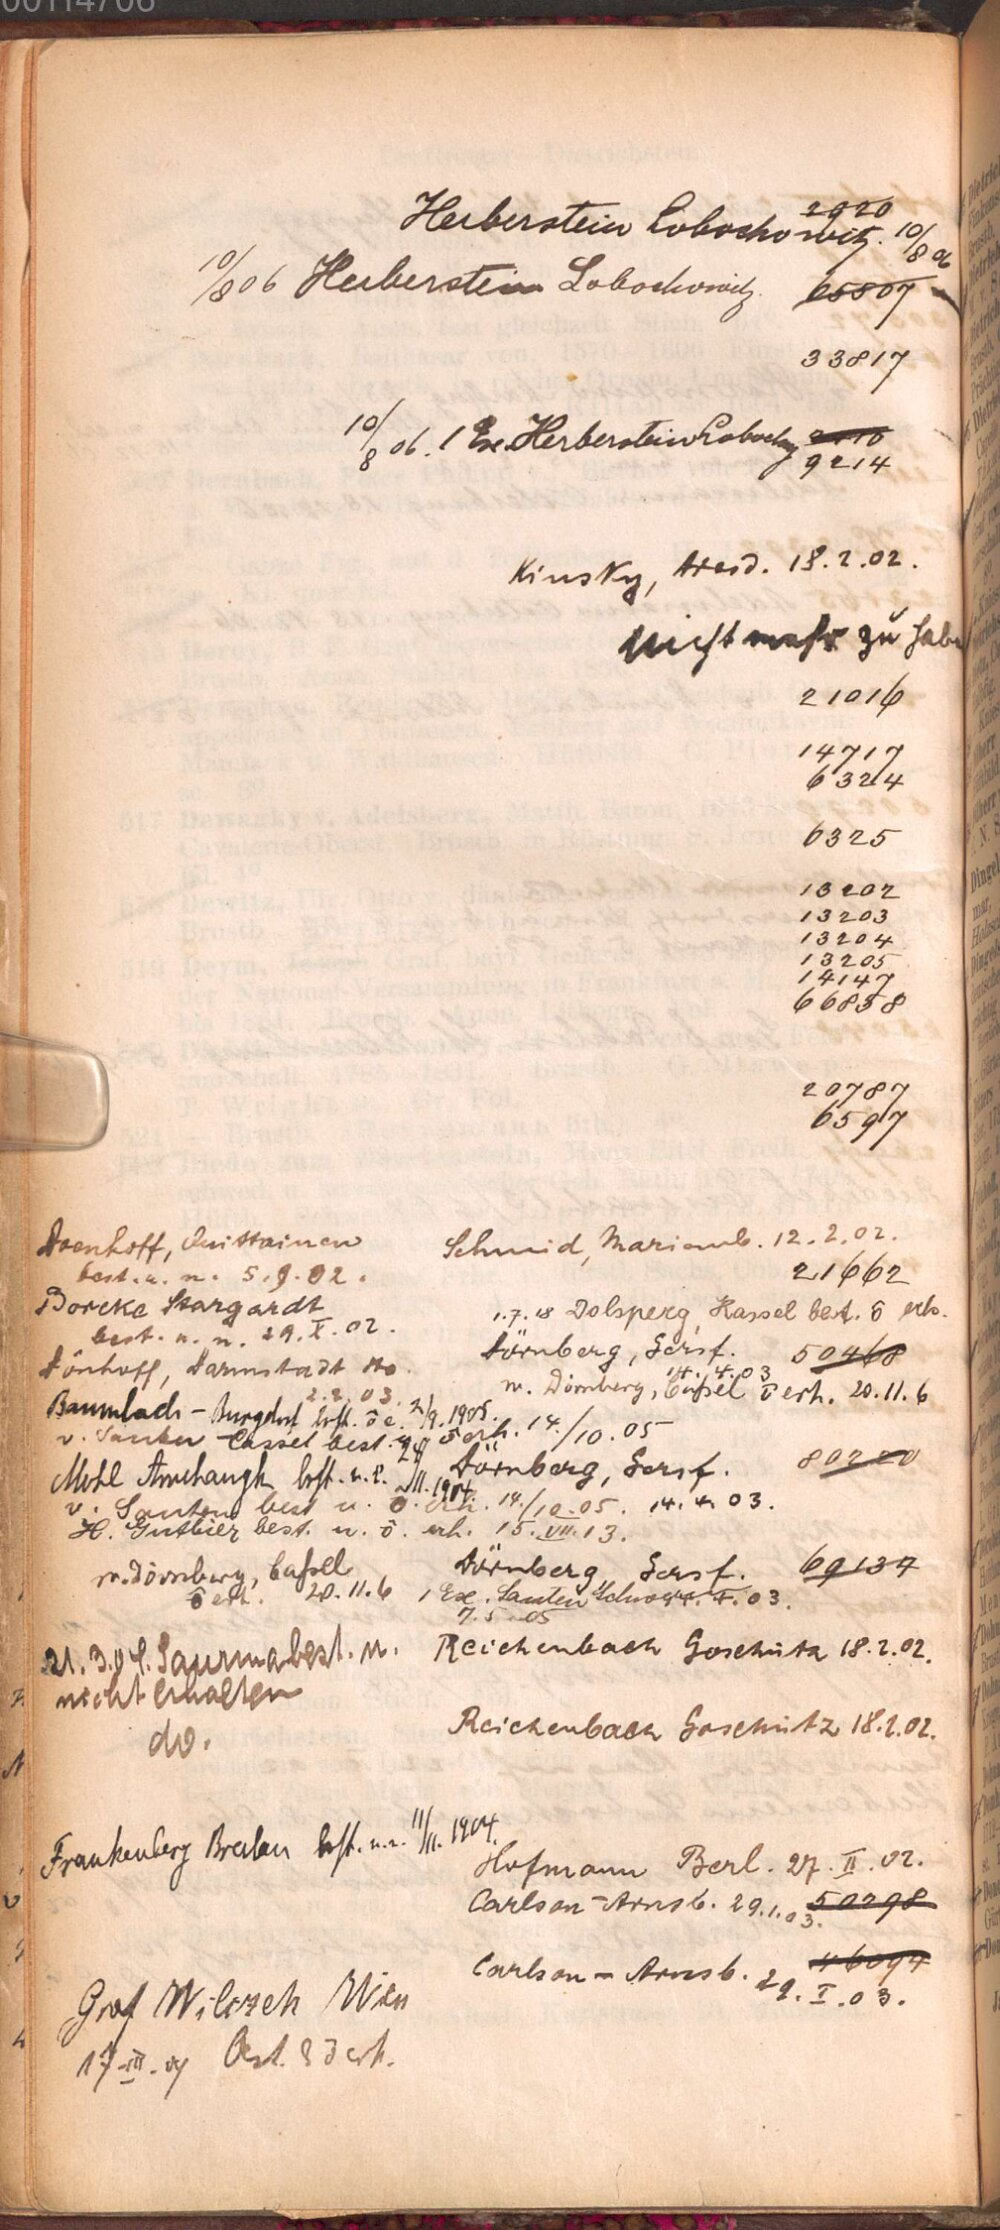 00114706
2920
Herberstein Lobochowitz. 10/8 06
10/8 06 Herberstein Lobochowitz. 65807
33817
10/8 06. 1 Ex. Herberstein Lobochy
9214
Kinsky, Dresd. 18.2.02.
nicht mehr zu habe
21016
14717
6324
6325
13202
13203
13204
13205
14147
66858
20787
6597
Doenhoff, Quittainen
best. u. n. 5.9.02.
Schmid, Marienb. 12.2.02.
21662
Borcke Stargardt
best. u. n. 29.X.02.
1.7.18 Dolsperg, Kassel best. ō erh.
Dönhoff, Darmstadt
2.2.03.
Dörnberg, Gersf. 50468
14.4.03
v. Dörnberg, Cassel ō erh. 20.11.6
Baumbach-Burgdorf best. ō e. 2/9.1905.
Cassel best. ō erh. 14./10.05
Dörnberg, Gersf. 80220
14.4.03.
Mohl Arnshaugk best. u. n. 1904
v. Santen best u. ō. erh. 14./10.05.
H. Gutbier best. u. ō. erh. 15.VII.13.
v. Dörnberg, Cassel
ō erh. 20.11.6
Dörnberg, Gersf. 69137
1 Ex. Santen
7.5.05
21.3.04. Saurma best. u.
nicht erhalten
do.
Reichenbach Goschütz 18.2.02.
Reichenbach Goschütz 18.2.02.
Frankenberg Breslau best. u. n. 11/II. 1904.
Hofmann Berl. 27.II.02.
Carlson-Arnsb. 29.1.03. 50298
Carlson-Arnsb. 46094
29.I.03.
Graf Wilczek Wien
17.VII.07 Best. & ō erh.